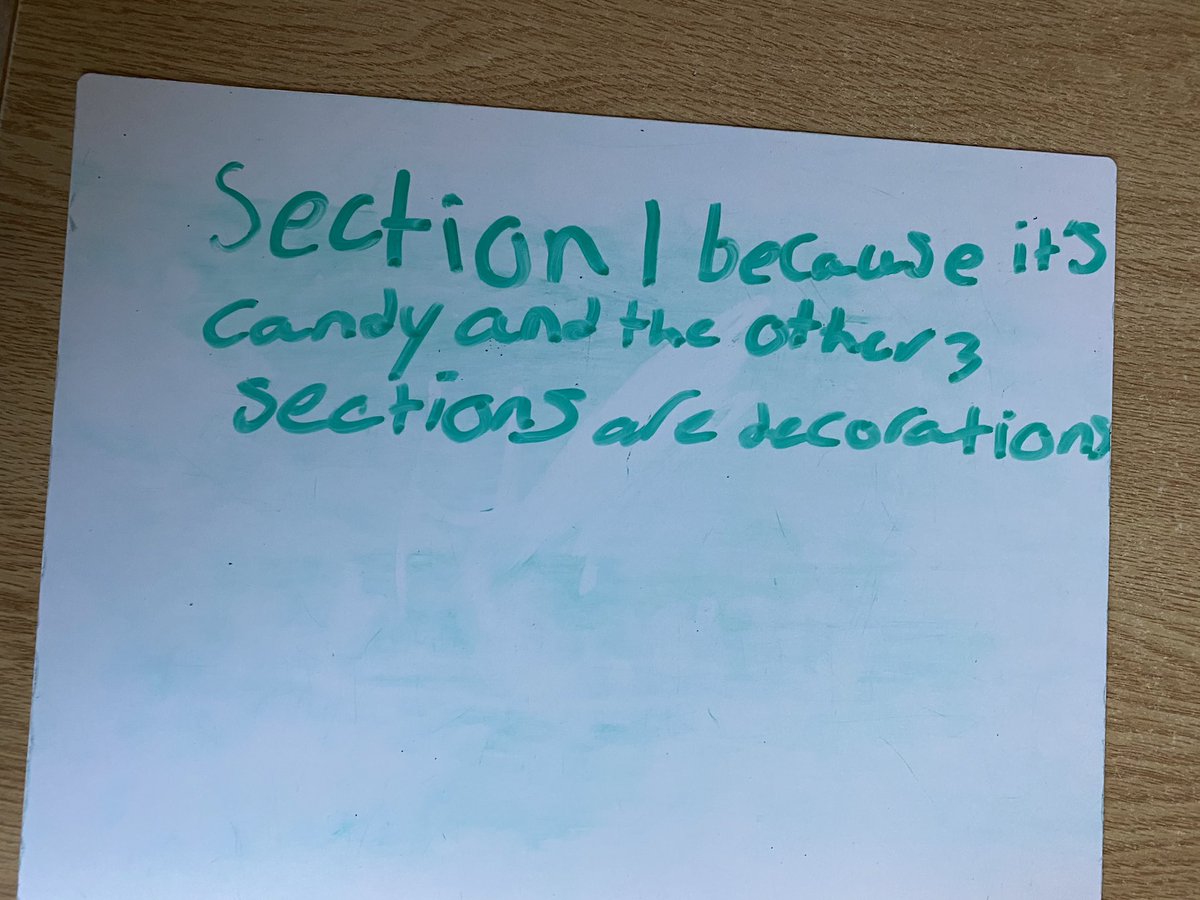 Section 1 because it's
candy and the other 3
sections are decorations